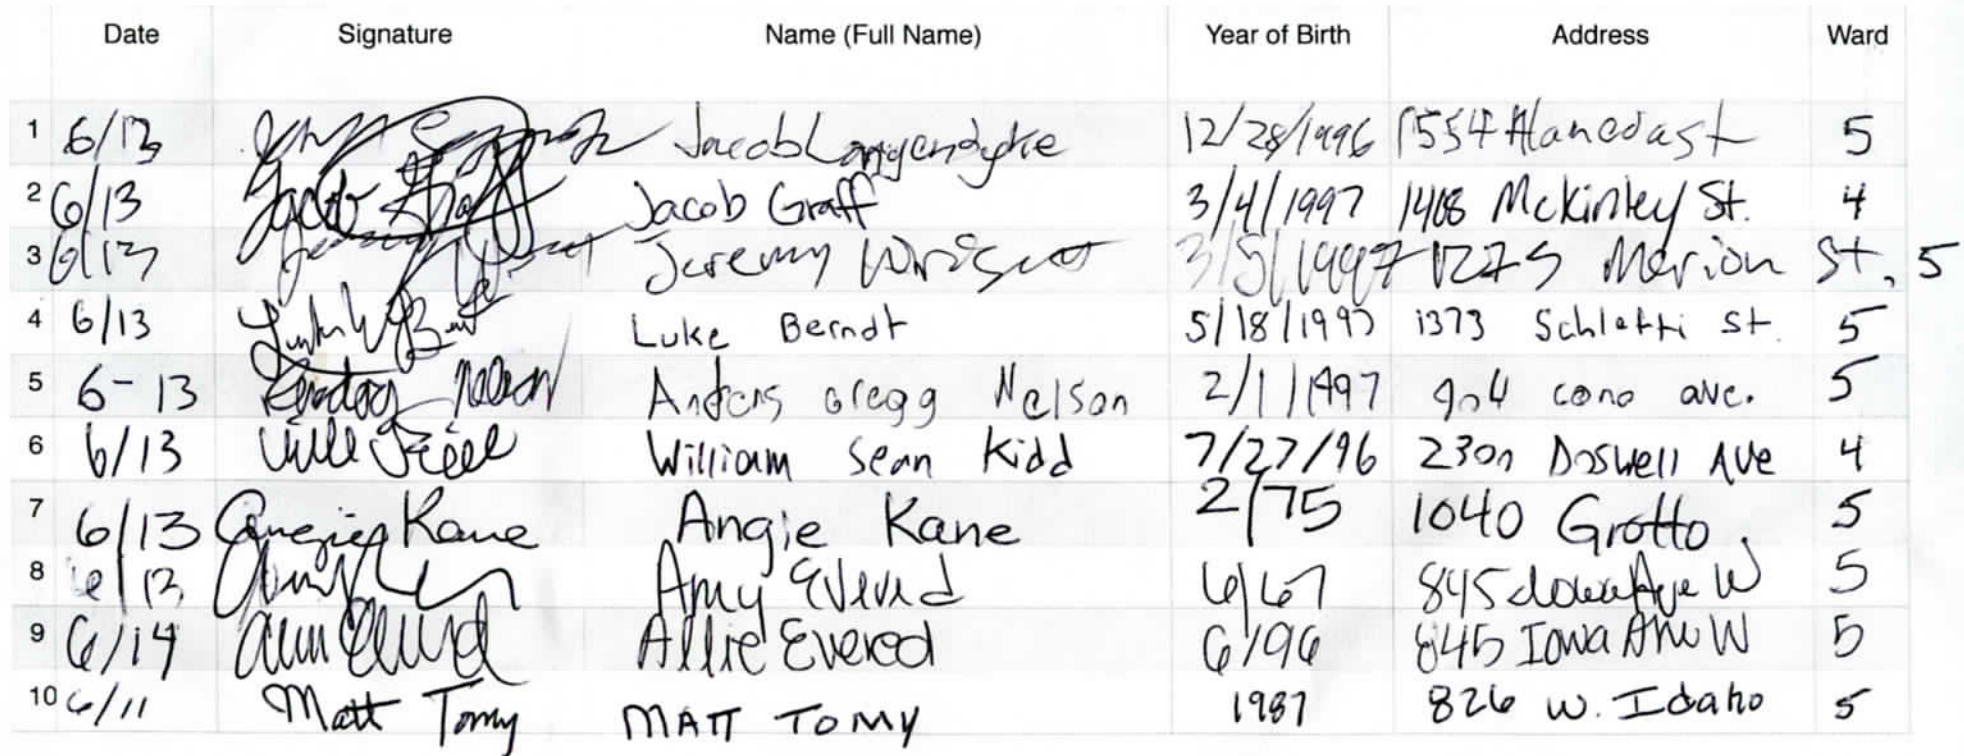 Date Signature Name (Full Name) Year of Birth Address Ward
1 6/13 Jacob Langendyke 12/28/1996 1554 5
2 6/13 Jacob Graff Jacob Graff 3/4/1997 1408 McKinley St. 4
3 6/13 Jeremy 3/5/1997 1227 S Merion St, 5
4 6/13 Luke Berndt 5/18/1997 1373 Schletti St. 5
5 6-13 Nelson Anders Gregg Nelson 2/1/1997 904 como ave. 5
6 6/13 Will William Sean Kidd 7/27/96 Doswell Ave 4
7 6/13 Kane Angie Kane 2/75 1040 Grotto 5
8 6/13 Amy Evered 6/67 845 Iowa Ave W 5
9 6/14 Allie Evered 6/96 845 Iowa Ave W 5
10 6/11 Matt Tomy MATT TOMY 1987 826 W. Idaho 5